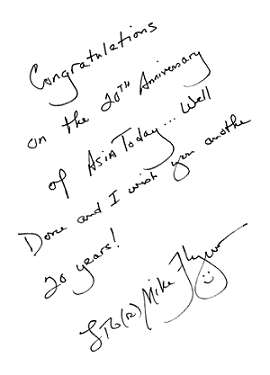 Congratulations
on the 20TH Anniversary
of ASIA Today... Well
Done and I wish you anothe
20 years!
LTG(R) Mike Flynn